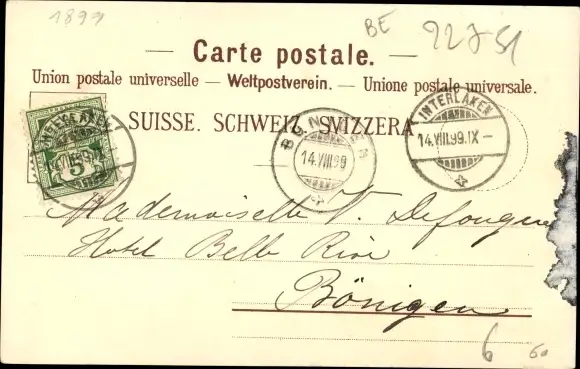 1899
BE
22751
— Carte postale. —
Union postale universelle — Weltpostverein. — Unione postale universale.
SUISSE. SCHWEIZ. SVIZZERA
INTERLAKEN
14.VIII.99.IX–
14.VIII.99
INTERLAKEN
14.VIII.99.IX–
5
Mademoiselle V.
Hotel Belle Rive
Bönigen
6
60